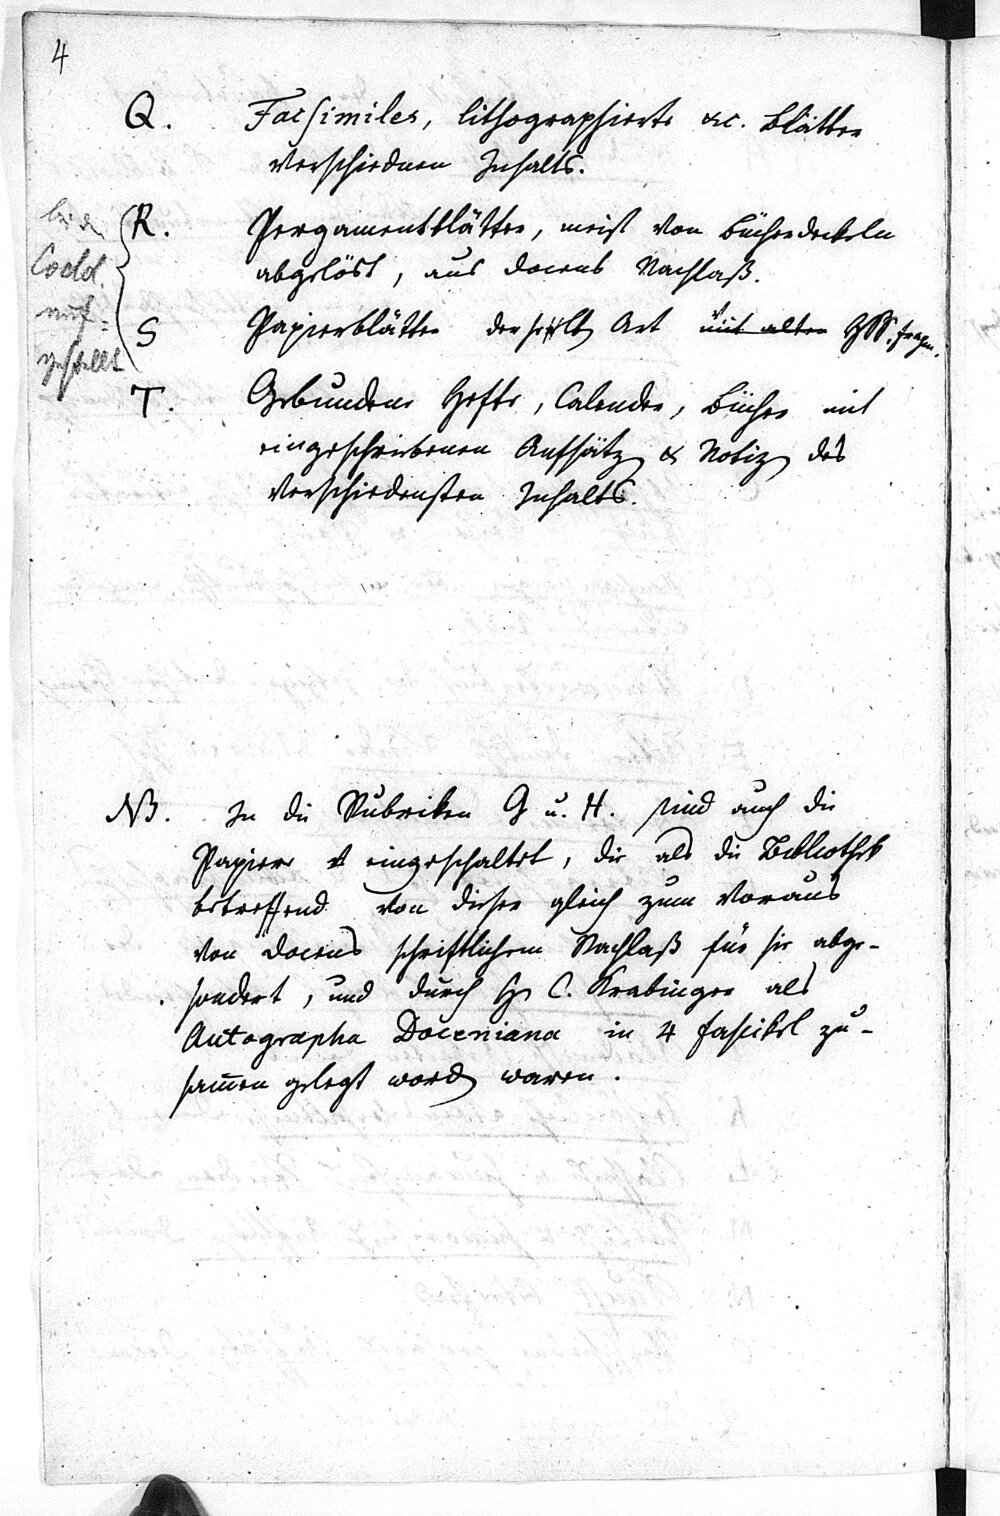 4
Q. Facsimiles, lithographierte &c. Blätter
verschiednen Inhalts.
R. Pergamentblätter, meist von Bücherdeckeln
abgelöst, aus Docens Nachlaß.
S Papierblätter derselb Art mit alten HSS. fragm.
bei d
Codd.
auf-
gestellt
T. Gebundene Hefte, Calender, Bücher mit
eingeschriebenen Aufsätz & Notiz des
verschiedensten Inhalts.
NB. In die Rubriken G u. H. sind auch die
Papiere eingeschaltet, die als die Bibliothek
betreffend von dieser gleich zum Voraus
von Docens schriftlichem Nachlaß für sie abge-
sondert, und durch H C. Krabinger als
Autographa Doceniana in 4 Fascikel zu-
sam̄en gelegt word waren.